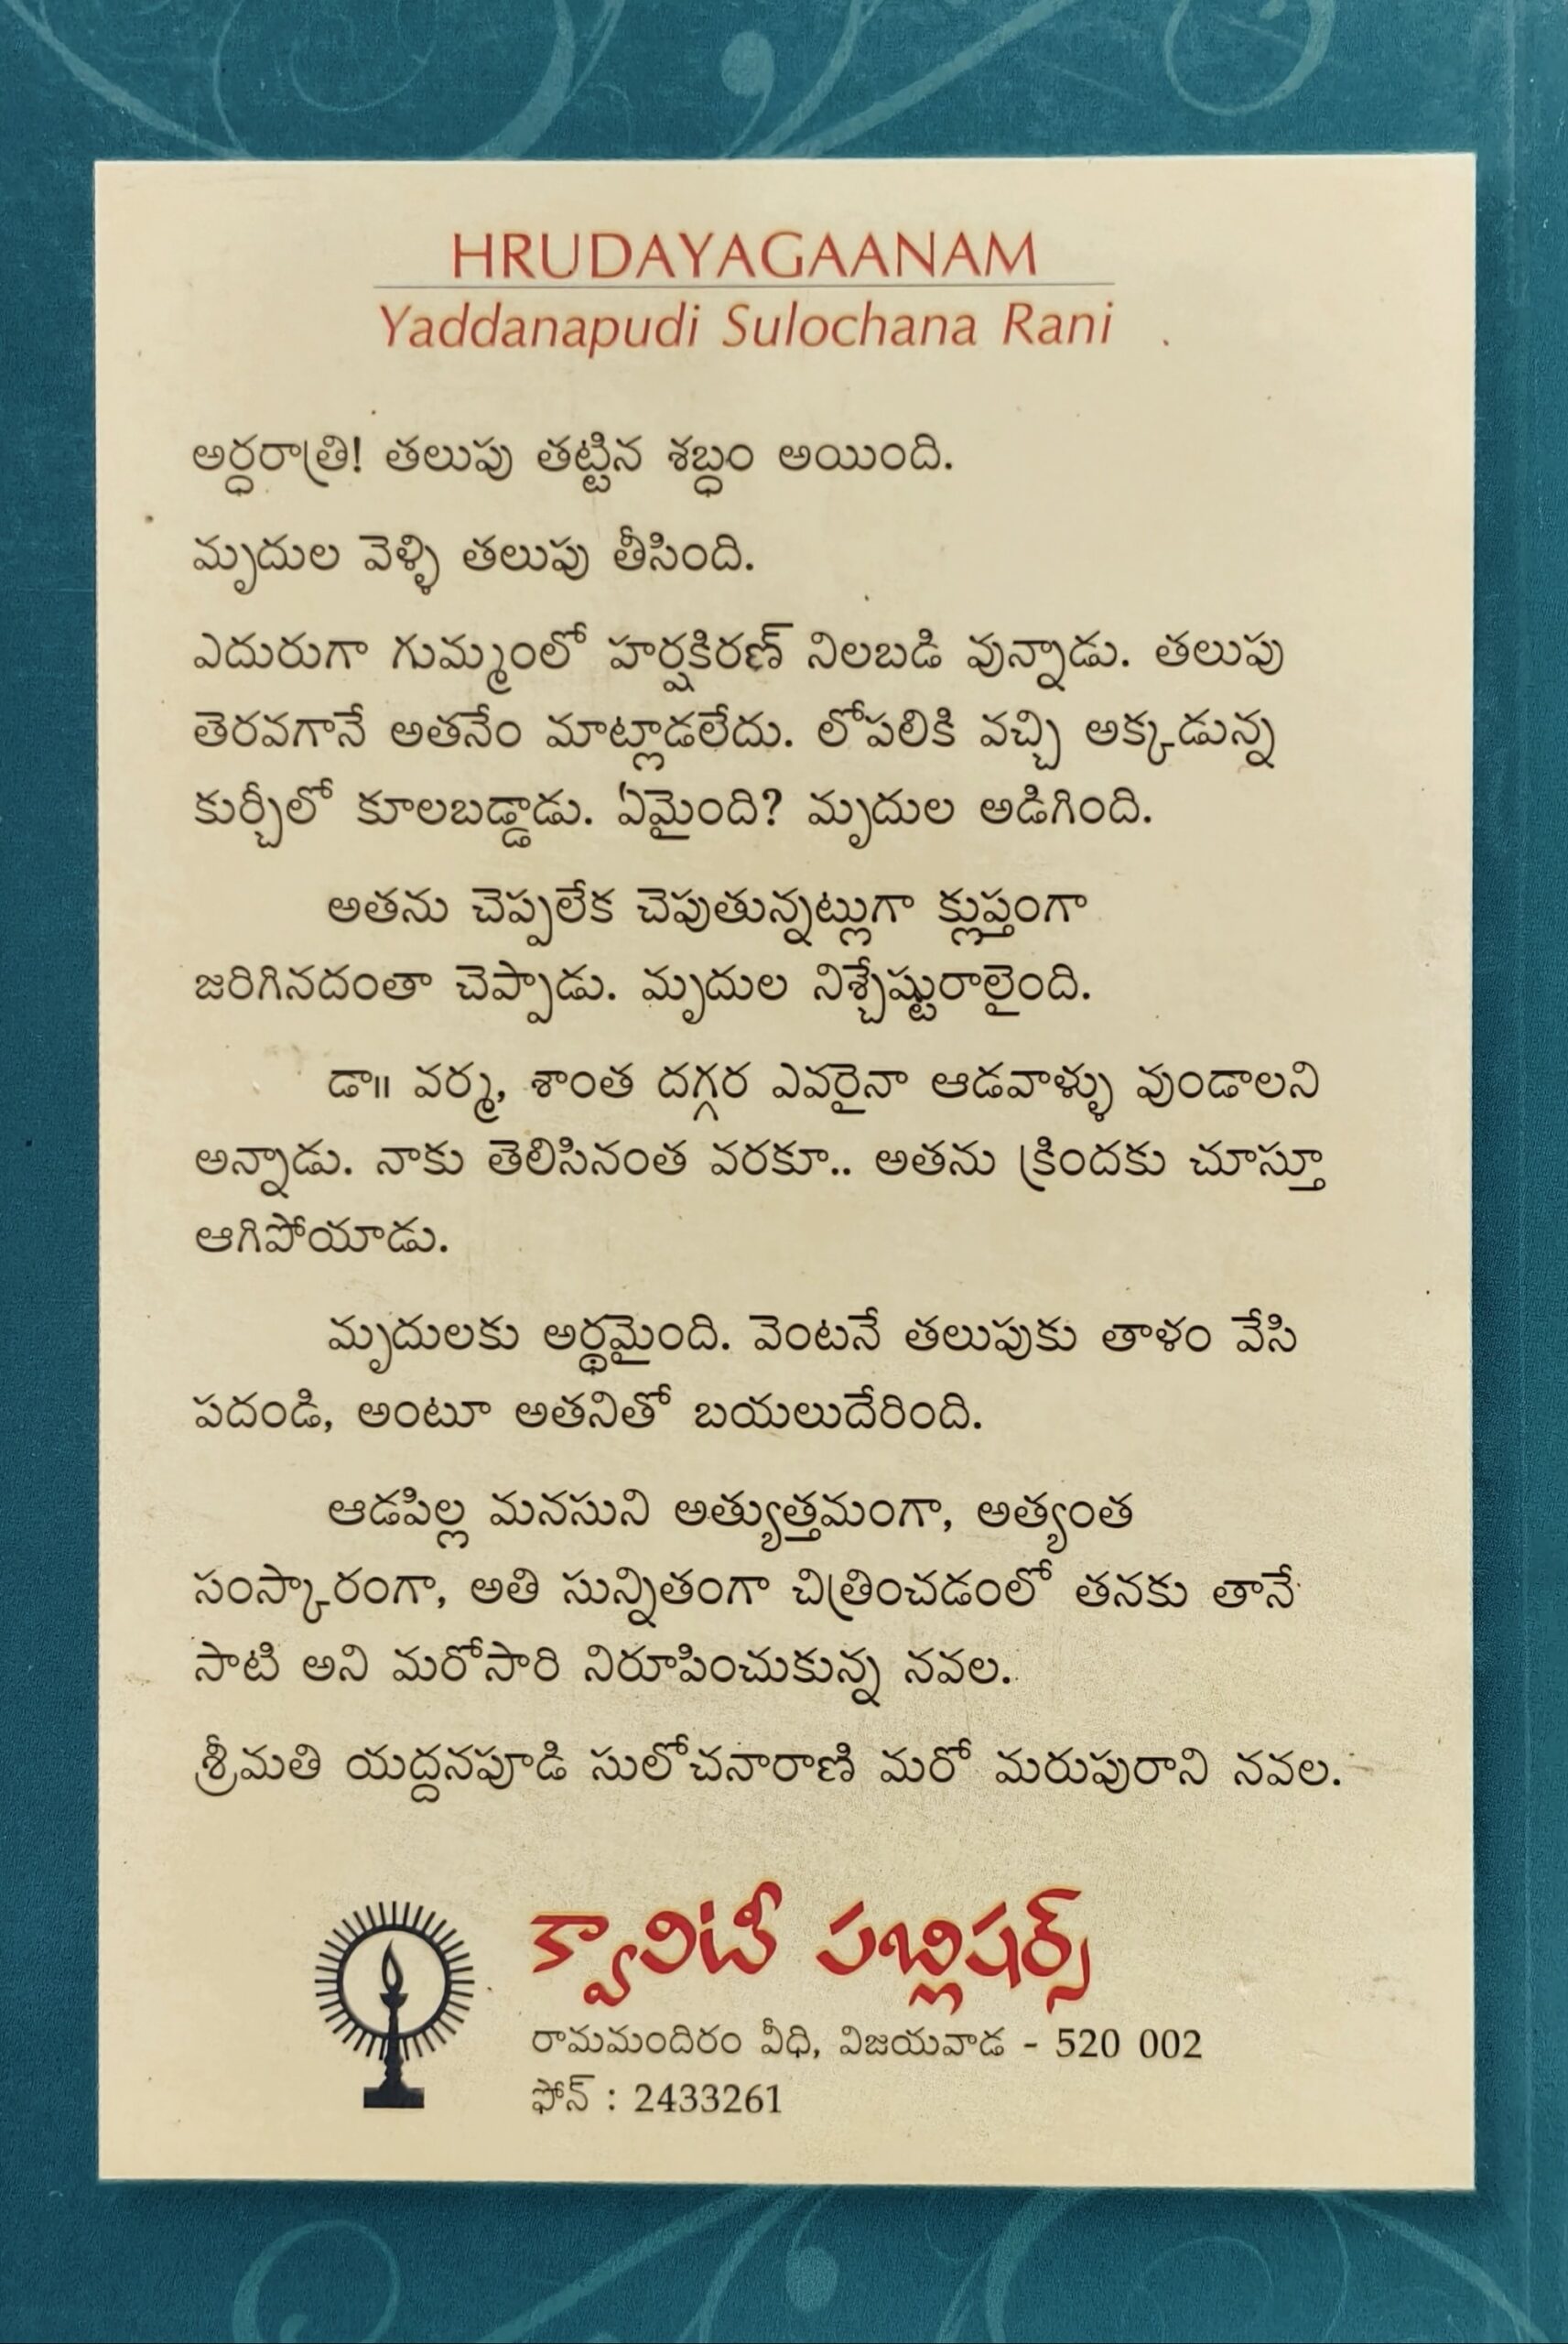 HRUDAYAGAANAM
Yaddanapudi Sulochana Rani
అర్ధరాత్రి! తలుపు తట్టిన శబ్ధం అయింది.
మృదుల వెళ్ళి తలుపు తీసింది.
ఎదురుగా గుమ్మంలో హర్షకిరణ్ నిలబడి వున్నాడు. తలుపు
తెరవగానే అతనేం మాట్లాడలేదు. లోపలికి వచ్చి అక్కడున్న
కుర్చీలో కూలబడ్డాడు. ఏమైంది? మృదుల అడిగింది.
అతను చెప్పలేక చెపుతున్నట్లుగా క్లుప్తంగా
జరిగినదంతా చెప్పాడు. మృదుల నిశ్చేష్టురాలైంది.
డా॥ వర్మ, శాంత దగ్గర ఎవరైనా ఆడవాళ్ళు వుండాలని
అన్నాడు. నాకు తెలిసినంత వరకూ.. అతను క్రిందకు చూస్తూ
ఆగిపోయాడు.
మృదులకు అర్థమైంది. వెంటనే తలుపుకు తాళం వేసి
పదండి, అంటూ అతనితో బయలుదేరింది.
ఆడపిల్ల మనసుని అత్యుత్తమంగా, అత్యంత
సంస్కారంగా, అతి సున్నితంగా చిత్రించడంలో తనకు తానే
సాటి అని మరోసారి నిరూపించుకున్న నవల.
శ్రీమతి యద్దనపూడి సులోచనారాణి మరో మరుపురాని నవల.
క్వాలిటీ పబ్లిషర్స్
రామమందిరం వీధి, విజయవాడ - 520 002
ఫోన్ : 2433261